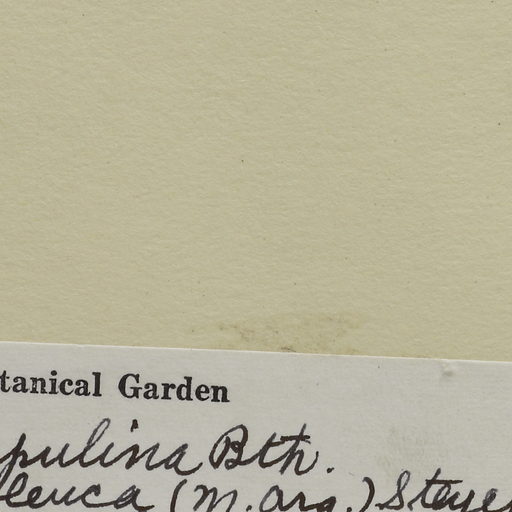 tanical Garden
pulina Bth.
leuca (M. Arg.) Steye